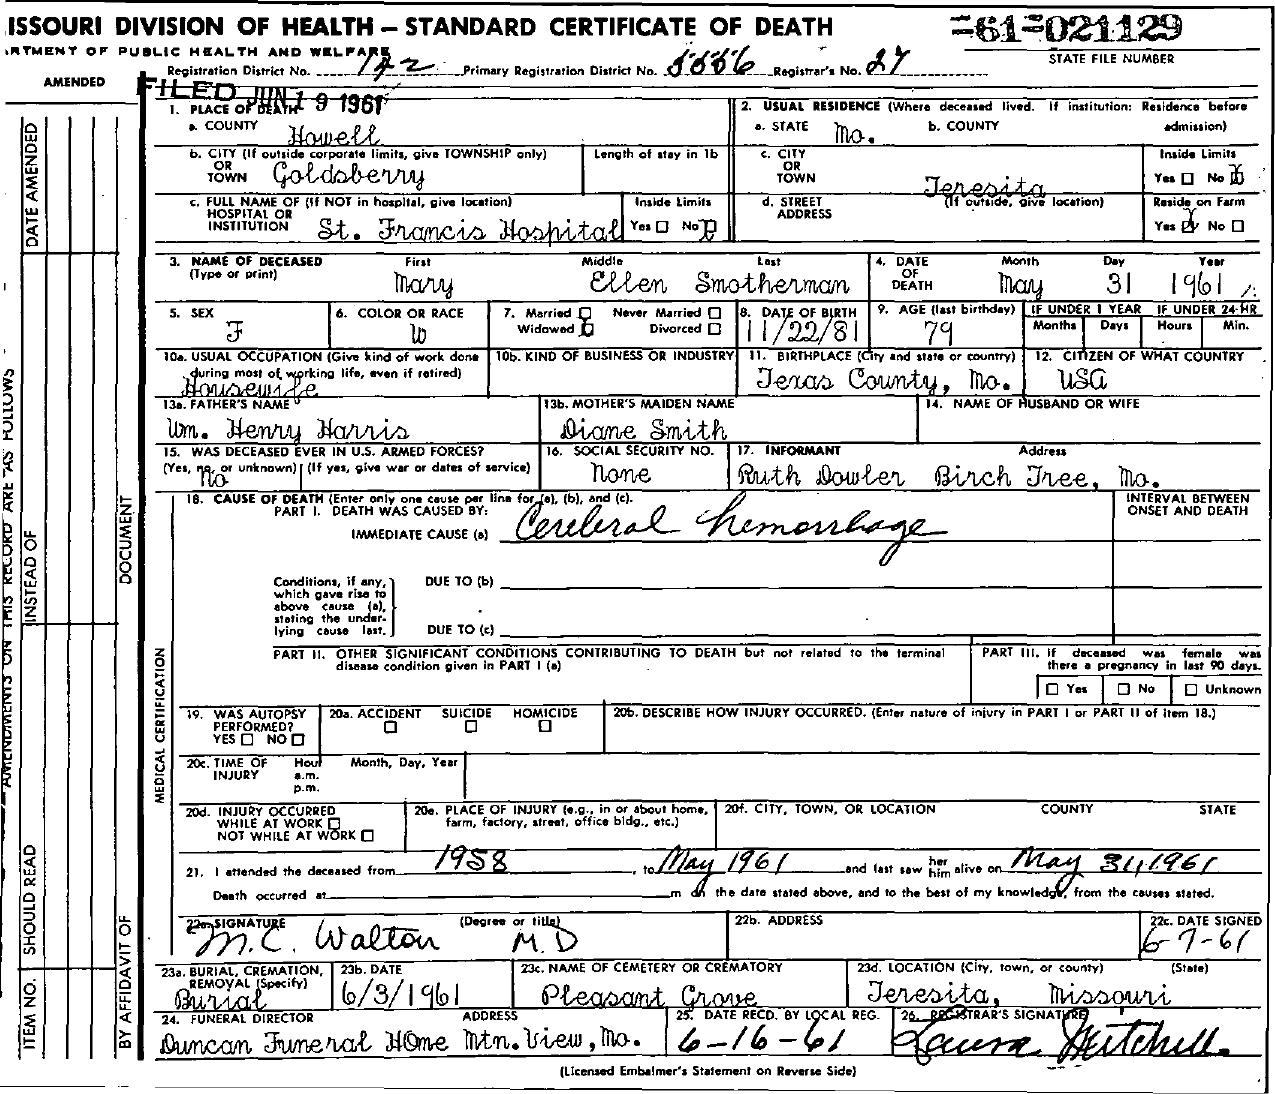 ISSOURI DIVISION OF HEALTH – STANDARD CERTIFICATE OF DEATH
=61=021129
ARTMENT OF PUBLIC HEALTH AND WELFARE
STATE FILE NUMBER
Registration District No. 122 Primary Registration District No. 5556 Registrar's No. 27
AMENDED
FILED JUN 19 1961
1. PLACE OF DEATH
a. COUNTY Howell
2. USUAL RESIDENCE (Where deceased lived. If institution: Residence before admission)
a. STATE Mo. b. COUNTY
b. CITY (If outside corporate limits, give TOWNSHIP only) OR TOWN Goldsberry
Length of stay in 1b
c. CITY OR TOWN Teresita
Inside Limits Yes No X
c. FULL NAME OF (If NOT in hospital, give location) HOSPITAL OR INSTITUTION St. Francis Hospital
Inside Limits Yes No X
d. STREET ADDRESS (If outside, give location)
Reside on Farm Yes X No
3. NAME OF DECEASED (Type or print) First Mary Middle Ellen Last Smotherman
4. DATE OF DEATH Month May Day 31 Year 1961
5. SEX F
6. COLOR OR RACE W
7. Married Never Married Widowed X Divorced
8. DATE OF BIRTH 11/22/81
9. AGE (last birthday) 79
IF UNDER 1 YEAR Months Days
IF UNDER 24 HR Hours Min.
10a. USUAL OCCUPATION (Give kind of work done during most of working life, even if retired) Housewife
10b. KIND OF BUSINESS OR INDUSTRY
11. BIRTHPLACE (City and state or country) Texas County, Mo.
12. CITIZEN OF WHAT COUNTRY USA
13a. FATHER'S NAME Wm. Henry Harris
13b. MOTHER'S MAIDEN NAME Diane Smith
14. NAME OF HUSBAND OR WIFE
15. WAS DECEASED EVER IN U.S. ARMED FORCES? (Yes, no, or unknown) (If yes, give war or dates of service) No
16. SOCIAL SECURITY NO. None
17. INFORMANT Address Ruth Dowler Birch Tree, Mo.
18. CAUSE OF DEATH (Enter only one cause per line for (a), (b), and (c).
INTERVAL BETWEEN ONSET AND DEATH
PART I. DEATH WAS CAUSED BY:
IMMEDIATE CAUSE (a) Cerebral hemorrhage
Conditions, if any, which gave rise to above cause (a), stating the underlying cause last.
DUE TO (b)
DUE TO (c)
PART II. OTHER SIGNIFICANT CONDITIONS CONTRIBUTING TO DEATH but not related to the terminal disease condition given in PART I (a)
PART III. If deceased was female was there a pregnancy in last 90 days.
Yes No Unknown
19. WAS AUTOPSY PERFORMED? YES NO
20a. ACCIDENT SUICIDE HOMICIDE
20b. DESCRIBE HOW INJURY OCCURRED. (Enter nature of injury in PART I or PART II of item 18.)
20c. TIME OF INJURY Hour a.m. p.m. Month, Day, Year
20d. INJURY OCCURRED WHILE AT WORK NOT WHILE AT WORK
20e. PLACE OF INJURY (e.g., in or about home, farm, factory, street, office bldg., etc.)
20f. CITY, TOWN, OR LOCATION COUNTY STATE
21. I attended the deceased from 1958, to May 1961 and last saw her him alive on May 31, 1961
Death occurred at m on the date stated above, and to the best of my knowledge, from the causes stated.
22a. SIGNATURE (Degree or title) M.C. Walton M D
22b. ADDRESS
22c. DATE SIGNED 6-7-61
23a. BURIAL, CREMATION, REMOVAL (Specify) Burial
23b. DATE 6/3/1961
23c. NAME OF CEMETERY OR CREMATORY Pleasant Grove
23d. LOCATION (City, town, or county) (State) Teresita, Missouri
24. FUNERAL DIRECTOR ADDRESS Duncan Funeral Home Mtn. View, Mo.
25. DATE RECD. BY LOCAL REG. 6-16-61
26. REGISTRAR'S SIGNATURE Laura Mitchell.
(Licensed Embalmer's Statement on Reverse Side)
AMENDMENTS ON THIS RECORD ARE AS FOLLOWS
DATE AMENDED
INSTEAD OF
SHOULD READ
ITEM NO.
DOCUMENT
BY AFFIDAVIT OF
MEDICAL CERTIFICATION